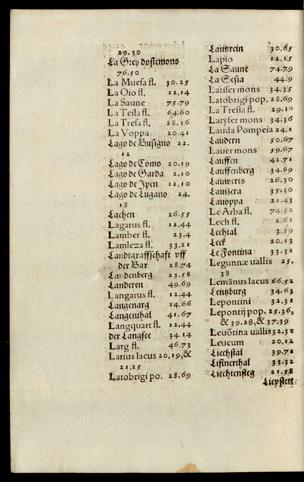 29.30
La Grey dostemons
76.50
La Muesa fl. 30.25
La Oio fl. 12.14
La Saune 75.79
La Teila fl. 64.60
La Tresa fl. 28.16
La Voppa 20.41
Lago de Busigno 22.
12
Lago de Como 20.19
Lago de Garda 2.10
Lago de Ypen 12.10
Lago de Lugano 24.
18
Lachen 26.55
Lagarus fl. 12.44
Lamber fl. 23.4
Lamleza fl. 33.21
Landtgraffschaft vff
der Bar 28.74
Landenberg 23.58
Landeren 40.69
Langarus fl. 12.44
Langenarg 14.66
Langenthal 41.67
Langquart fl. 12.44
der Langsee 34.14
Larg fl. 46.73
Larius lacus 20.19,&
21.15
Latobrigi po. 28.69
Lauwrein 30.65
Lapio 12.15
La Saune 74.79
La Sesia 44.9
Lauser mons 34.35
Latobrigi pop. 28.69
La Tresia fl. 29.10
Latyser mons 34.36
Lauda Pompeia 24.1
Laudern 50.67
Lauer mons 59.67
Lauffen 42.71
Lauffenberg 34.69
Lauwerts 26.30
Lauwopa 21.43
Le Arba fl. 74.52
Lech fl. 2.61
Lechtal 3.59
Leck 20.13
Le Fontina 33.31
Legunnæ uallis 25.
38
Lemānus lacus 66.52
Lentzburg 34.63
Lepontini 32.31
Lepontij pop. 25.36,
& 39.28,& 37.39
Leuōtina uallis 32.31
Leucum 20.12
Liechstal 39.71
Lifinerthal 33.32
Liechtensteg 21.58